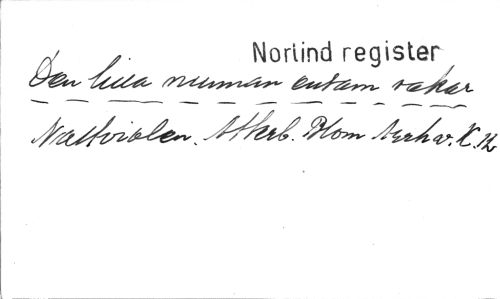 Norlind register
Den lilla nunnan ensam vakar
Nattviolen. Atterb. Blom